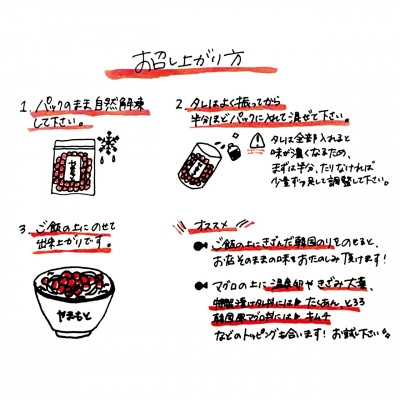 お召し上がり方
1. パックのまま自然解凍
して下さい。
2. タレはよく振ってから
半分ほどパックに入れて混ぜて下さい。
タレは全部入れると
味が濃くなるため、
まずは半分、たりなければ
少量ずつ足して調整して下さい。
3. ご飯の上にのせて
出来上がりです。
やまもと
オススメ
ご飯の上にきざんだ韓国のりをのせると、
お店そのままの味をおたのしみ頂けます!
マグロの上に温泉卵やきざみ大葉、
特製漬けタレ丼には▶たくあん、とろろ
韓国風マグロ丼には▶キムチ
などのトッピングも合います!お試し下さい